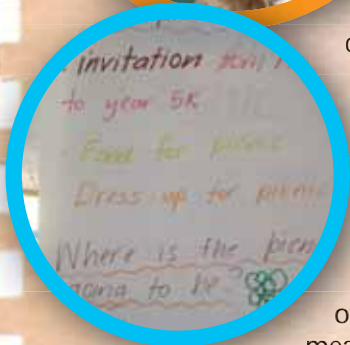 invitation
to year 5K
- Food for picnic
Dress up for picnic
Where is the picn
going to be?
o